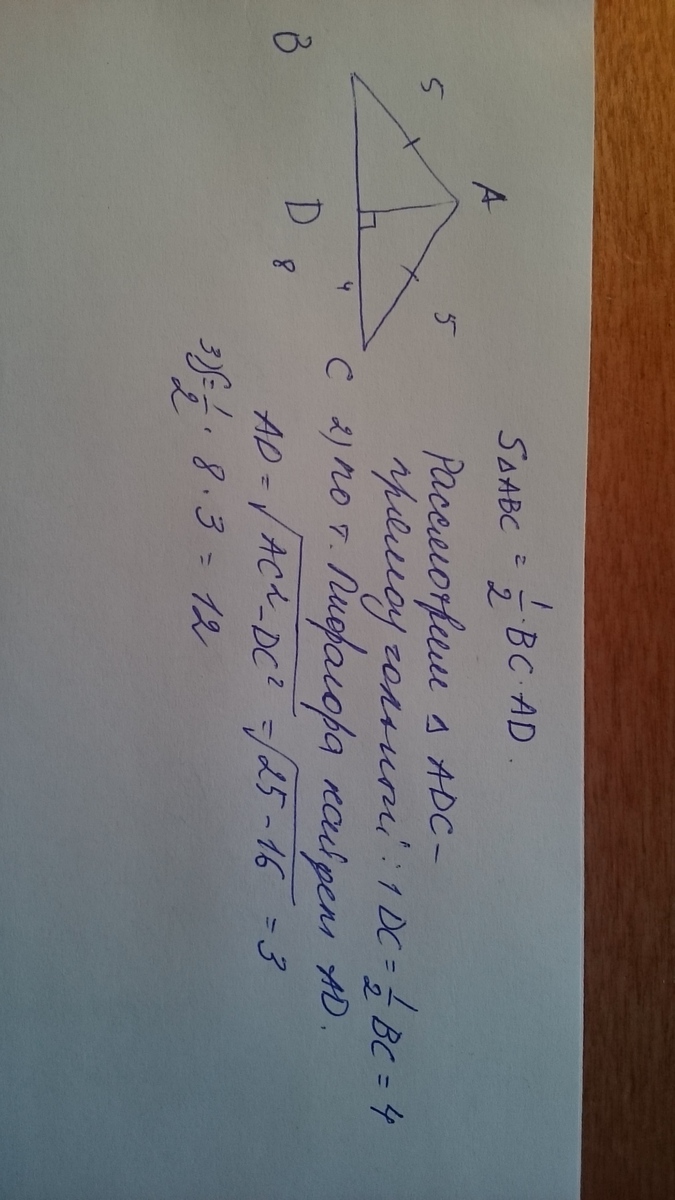 A
5
5
B
D
4
C
8
S△ABC = 1/2 · BC · AD.
Рассмотрим △ ADC –
прямоугольный : 1 DC = 1/2 BC = 4
2) по т. Пифагора найдем AD.
AD = √AC² – DC² = √25 – 16 = 3
3) S = 1/2 · 8 · 3 = 12